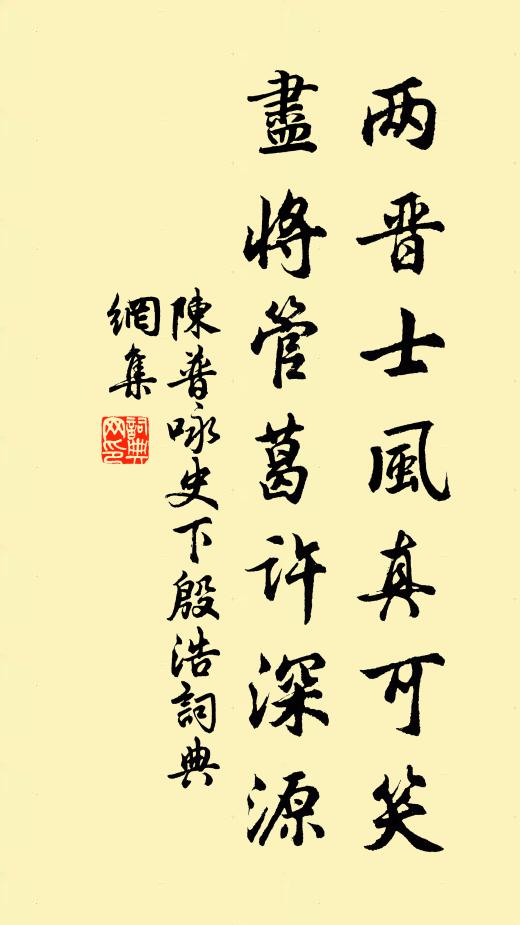 两晋士風真可笑
盡將管葛許深源
陳普咏史下殷浩詞典
網集
詞典
网印